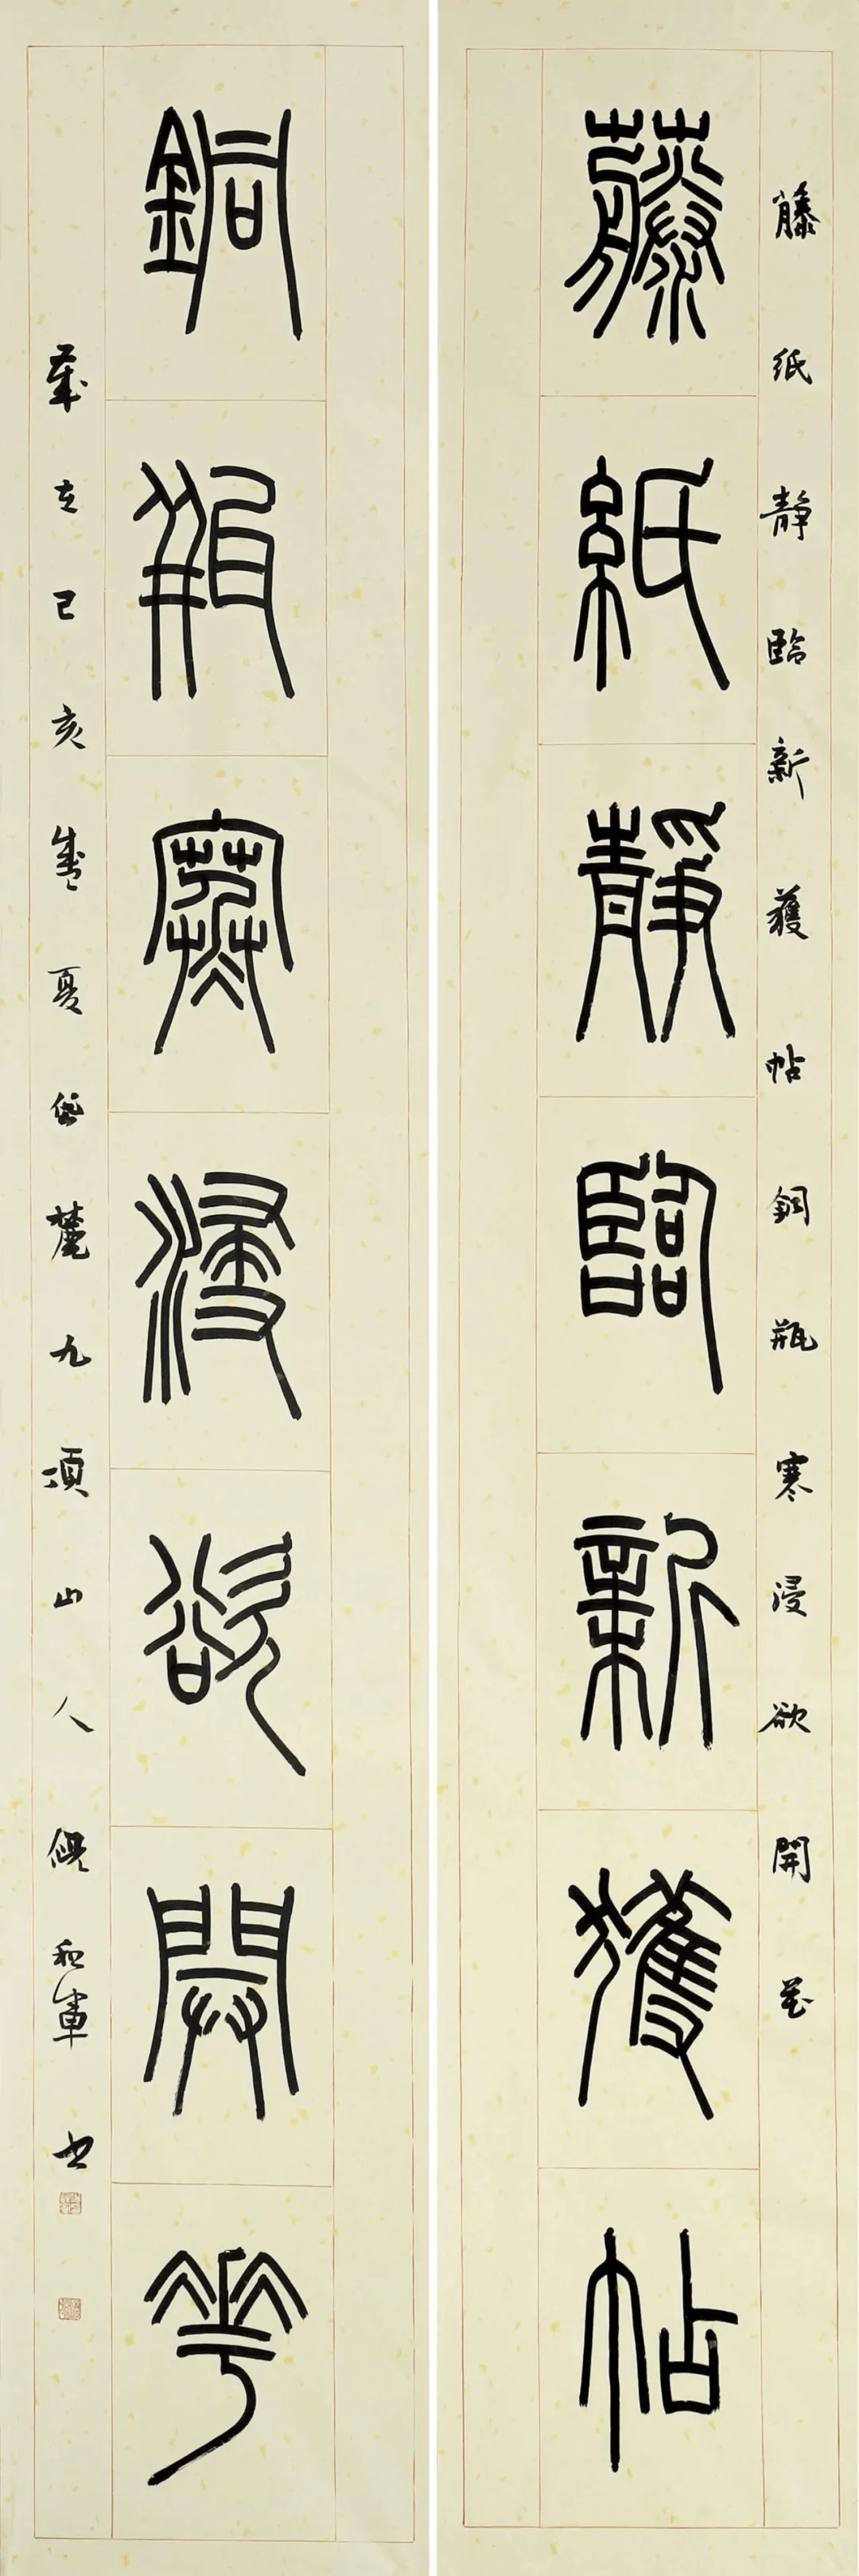 藤紙静臨新獲帖銅瓶寒浸欲開花
藤紙靜臨新獲帖
銅瓶寒浸欲開華
歲在己亥盛夏岱麓九頂山人倪和軍書